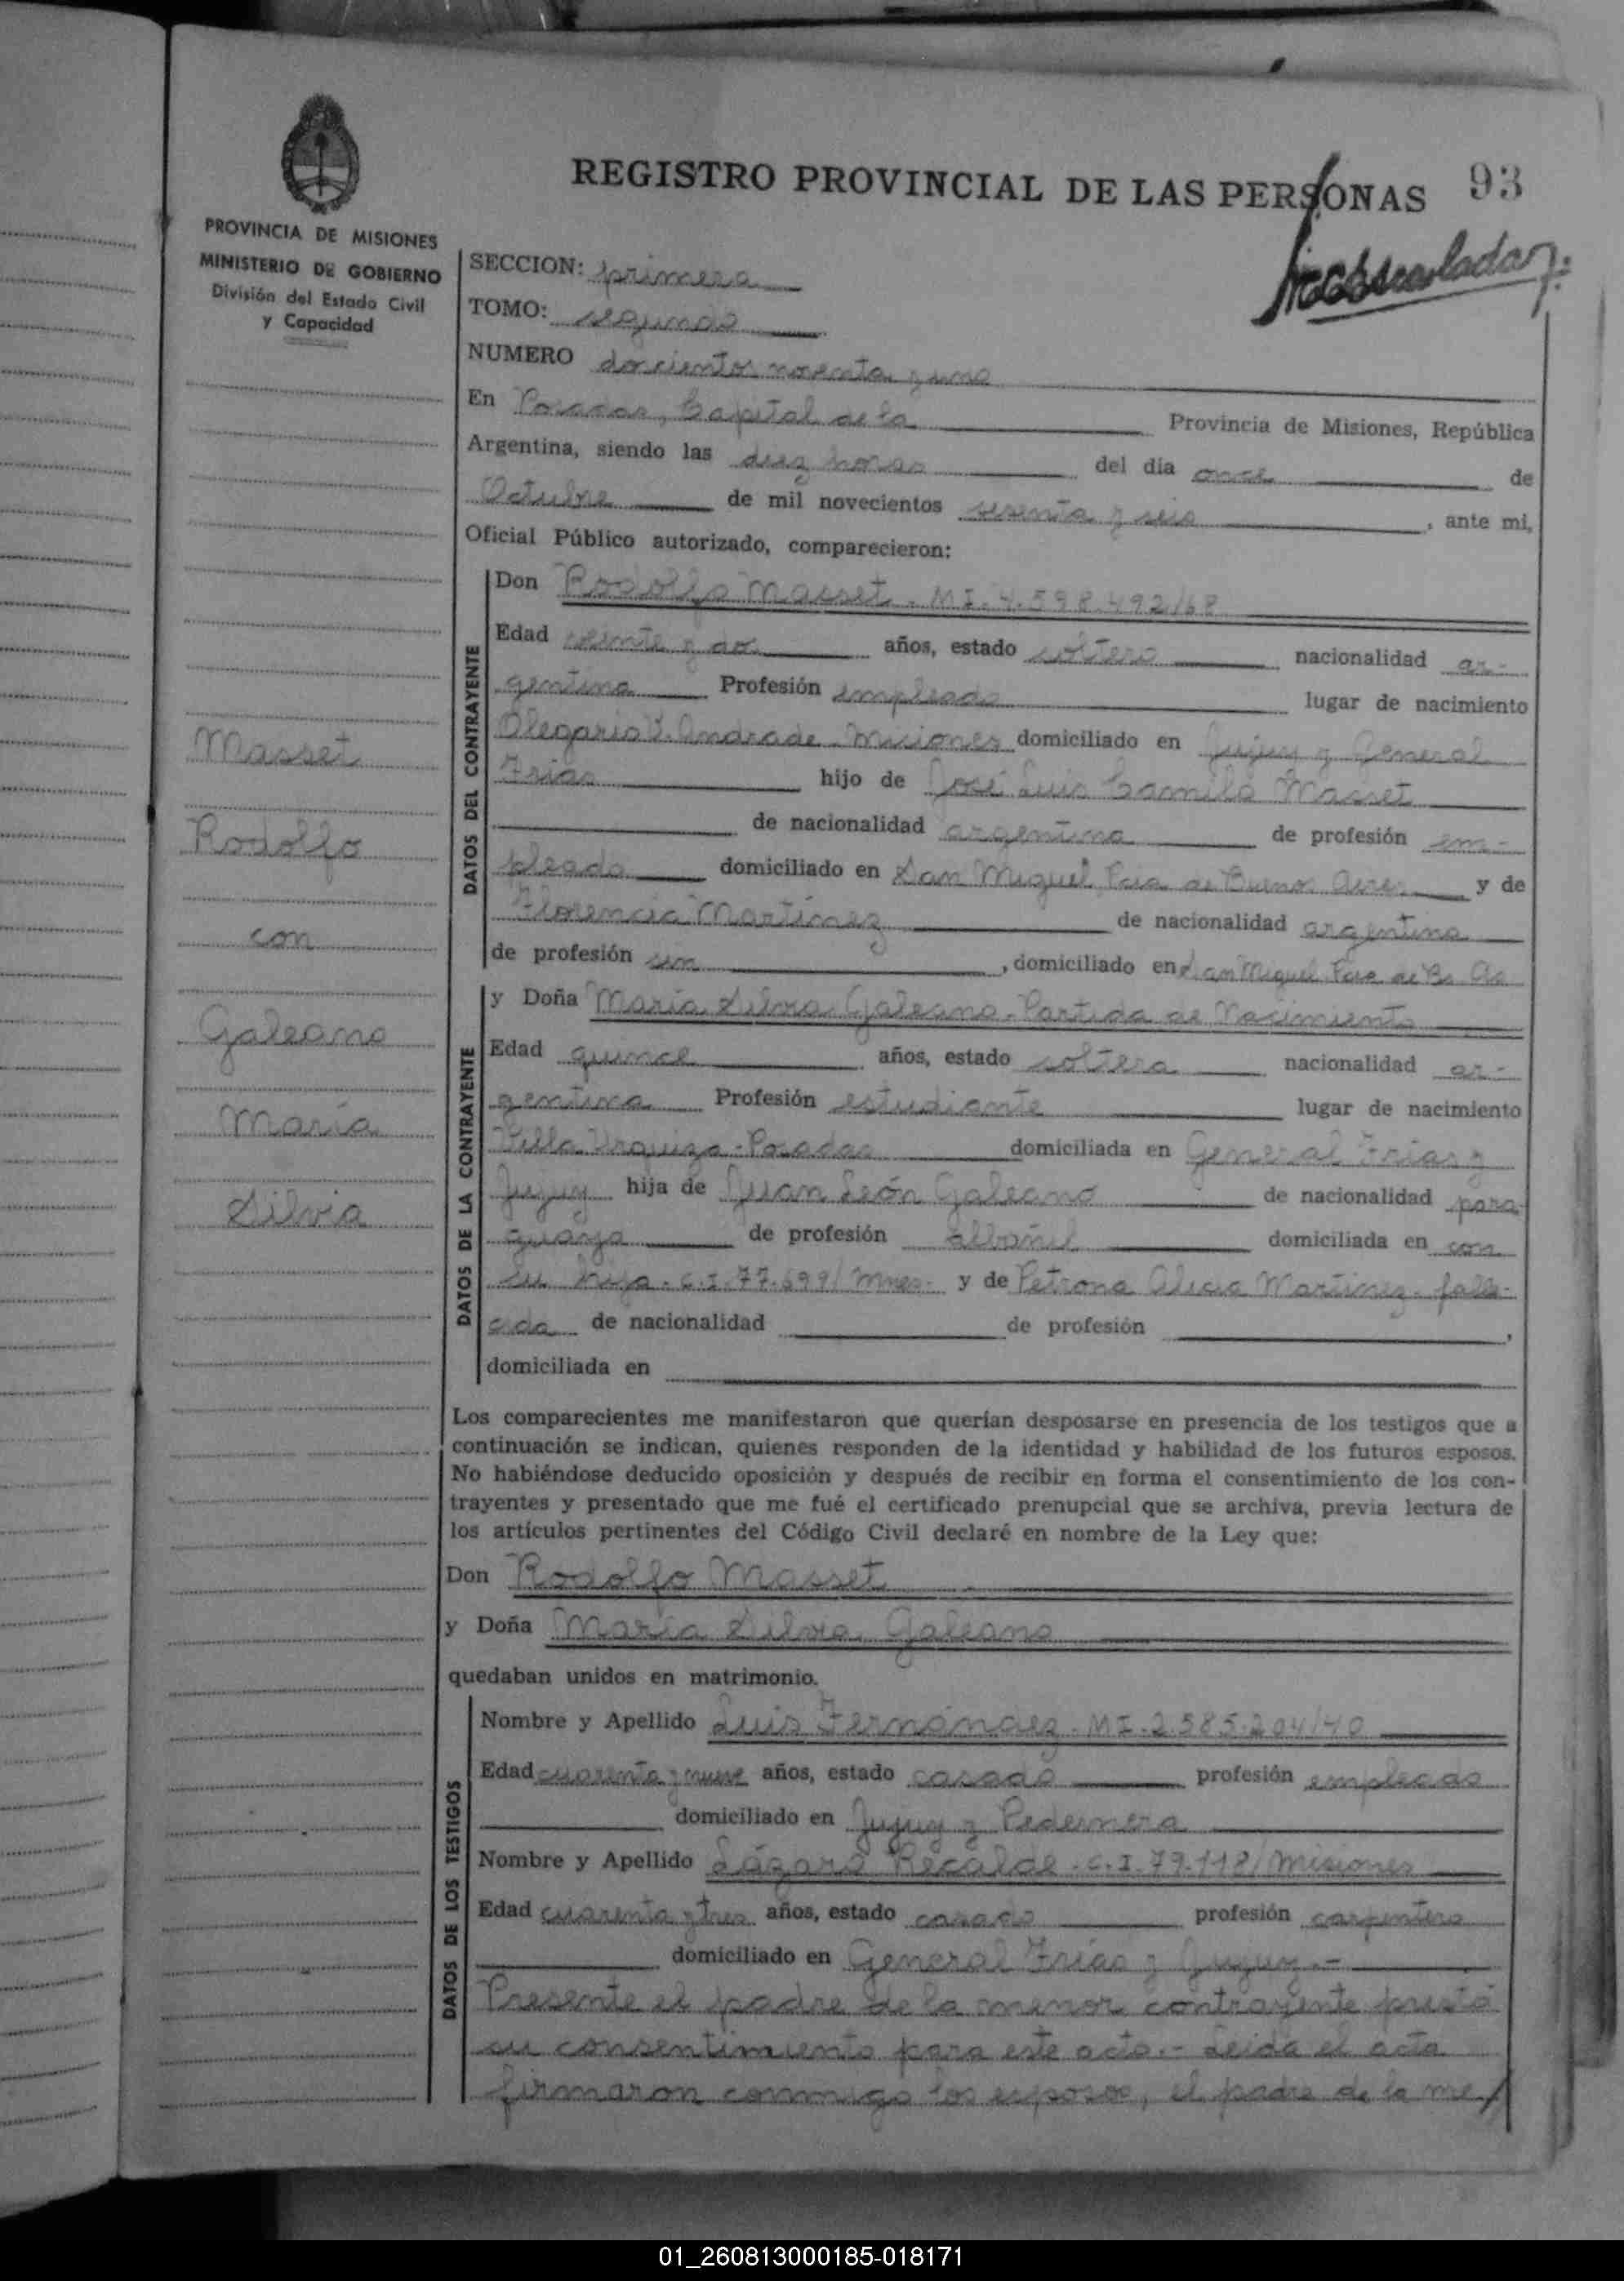 REGISTRO PROVINCIAL DE LAS PERSONAS
93
PROVINCIA DE MISIONES
MINISTERIO DE GOBIERNO
División del Estado Civil
y Capacidad
Masset
Rodolfo
con
Galeano
María
Silvia
SECCION: primera
TOMO: segundo
NUMERO doscientos noventa y uno
En Posadas, Capital de la Provincia de Misiones, República
Argentina, siendo las diez horas del día once de
Octubre de mil novecientos sesenta y seis, ante mi,
Oficial Público autorizado, comparecieron:
DATOS DEL CONTRAYENTE
Don Rodolfo Masset - MI. 7.598.492/68
Edad veinte y dos años, estado soltero nacionalidad ar-
gentina Profesión empleado lugar de nacimiento
Olegario V. Andrade - Misiones domiciliado en Jujuy y General
Frias hijo de José Luis Camilo Masset
de nacionalidad argentina de profesión em-
pleado domiciliado en San Miguel Pcia de Buenos Aires y de
Florencia Martínez de nacionalidad argentina
de profesión sin, domiciliado en San Miguel Pcia de Bs As
DATOS DE LA CONTRAYENTE
y Doña María Silvia Galeano - Partida de Nacimiento
Edad quince años, estado soltera nacionalidad ar-
gentina Profesión estudiante lugar de nacimiento
Villa Urquiza - Posadas domiciliada en General Frias y
Jujuy hija de Juan León Galeano de nacionalidad para-
guaya de profesión albañil domiciliada en con
su hija - C.I. 77.699/Mnes. y de Petrona Alicia Martinez - falle-
cida de nacionalidad de profesión ,
domiciliada en
Los comparecientes me manifestaron que querían desposarse en presencia de los testigos que a
continuación se indican, quienes responden de la identidad y habilidad de los futuros esposos.
No habiéndose deducido oposición y después de recibir en forma el consentimiento de los con-
trayentes y presentado que me fué el certificado prenupcial que se archiva, previa lectura de
los artículos pertinentes del Código Civil declaré en nombre de la Ley que:
Don Rodolfo Masset
y Doña María Silvia Galeano
quedaban unidos en matrimonio.
DATOS DE LOS TESTIGOS
Nombre y Apellido Luis Fernández - MI. 2.585.204/40
Edad cuarenta y nueve años, estado casado profesión empleado
domiciliado en Jujuy y Pedernera
Nombre y Apellido Lázaro Recalde - C.I. 79.118/Misiones
Edad cuarenta y tres años, estado casado profesión carpintero
domiciliado en General Frías y Jujuy.-
Presente el padre de la menor contrayente prestó
su consentimiento para este acto.- Leida el acta
firmaron conmigo los esposos, el padre de la me/
01_260813000185-018171